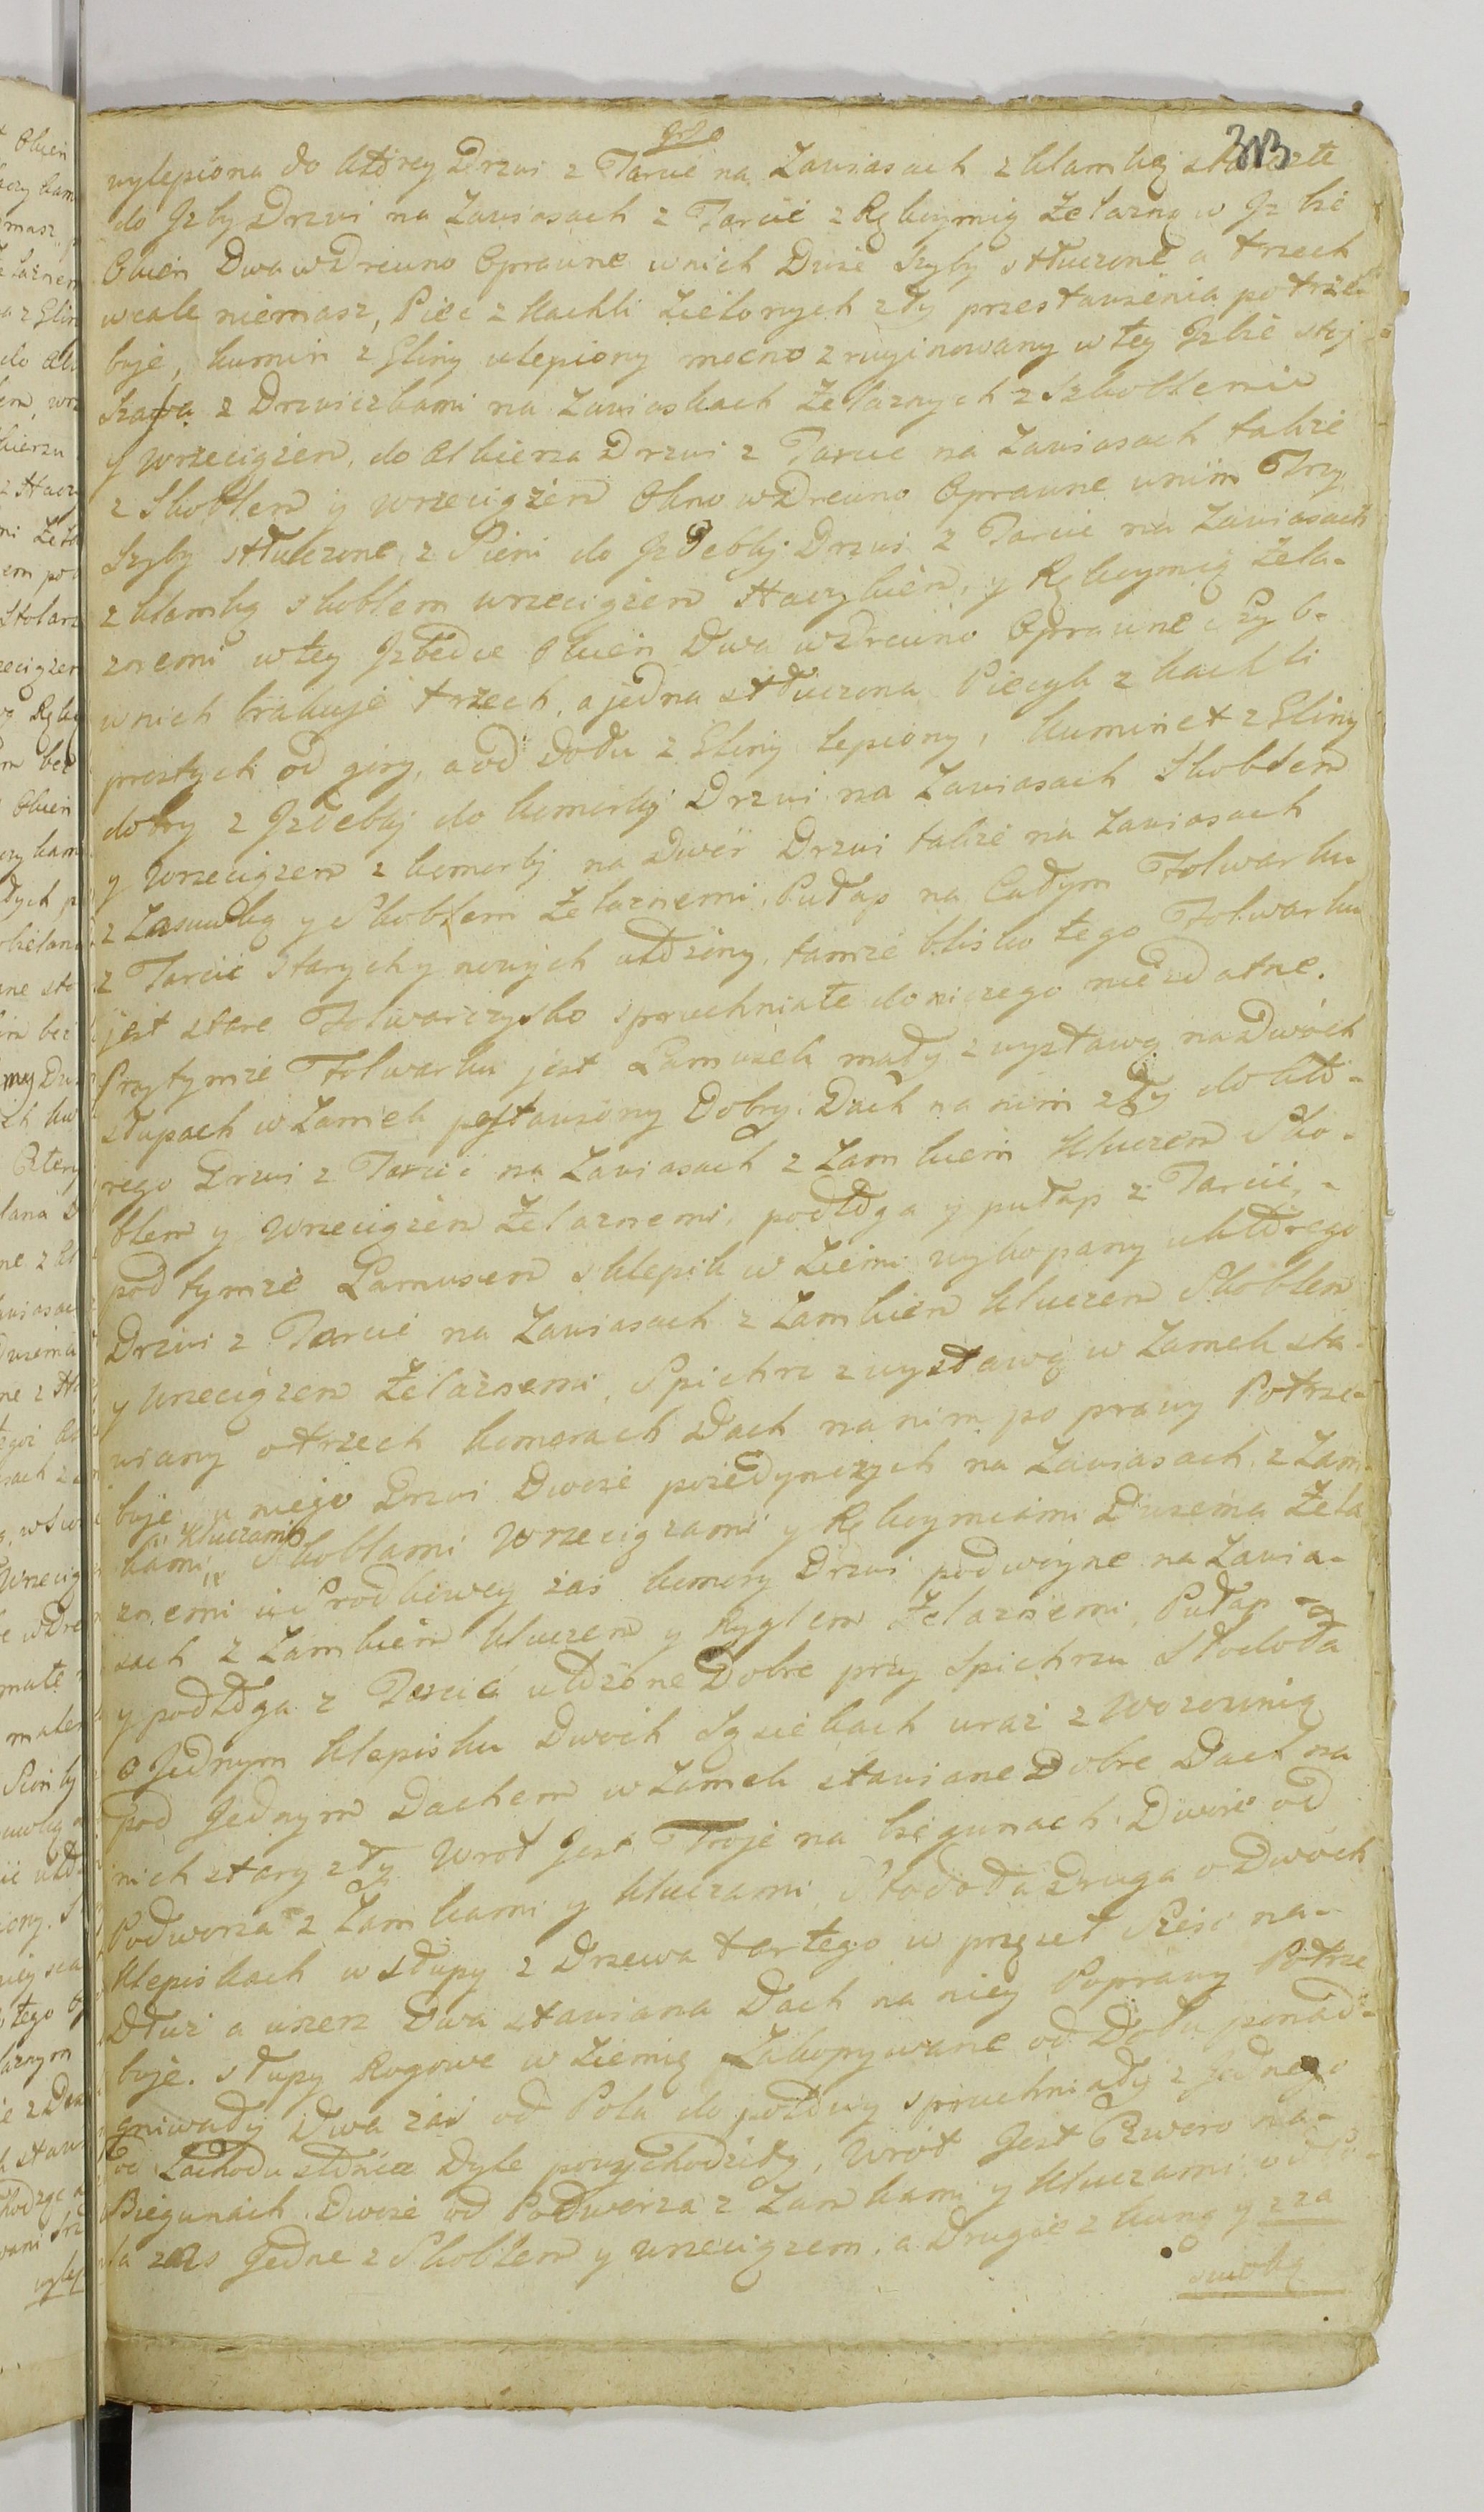 313
wylepiona do ktorey Drzwi z Tarcic na Zawiasach z klamką
do Jzby Drzwi na Zawiasach z Tarcic z Rękoymią Żelazną w Jzbie
Okien Dwa w Drewno Oprawne w nich Dwie Szyby stłuczone a trzech
wcale niemasz, Piec z Kachli Zielonych zły przestawienia potrze-
buje, kumin z Gliny ulepiony mocno zruyinowany w tey Jzbie stoj
Szafa z Drzwiczkami na Zawiaskach Żelaznych z Skoblemi
y wrzeciążem, do Alkierza Drzwi z Tarcic na Zawiasach także
z Skoblem y wrzeciążem Okno w Drewno Oprawne w nim Trzy
Szyby stłuczone, z Sieni do Jzdebki Drzwi z Tarcic na Zawiasach
z klamką skoblem wrzeciążem Haczykiem, y Rękoymią żela-
znemi w tey Jzbedce Okien Dwa w Drewno Oprawne Szyb-
w nich brakuje trzech, a jedna stłuczona Piecyk z kachli
prostych od gory, a od Dołu z Gliny lepiony, kuminek z Gliny
dobry z Jzdebki do komorki Drzwi na Zawiasach Skoblem
y Wrzeciążem z komorki na Dwor Drzwi także na Zawiasach
z Zasuwką y Skoblem Żelaznemi. Pułap na Całym Folwarku
z Tarcic starych y nowych ułożony, tamże blisko tego Folwarku
jest stare Folwarczysko spruchniałe do niczego niezdatne.
Przytymże Folwarku jest Lamusek mały z wystawą na Dwoch
słupach w Zamek postawiony Dobry. Dach na nim zły do kto-
rego Drzwi z Tarcic na Zawiasach z Zamkiem kluczem Sko-
blem y Wrzeciążem Żelaznemi, podłoga y pułap z Tarcic,-
pod tymże Lamusem sklepik w Ziemi wykopany u ktorego
Drzwi z Tarcic na Zawiasach z Zamkiem kluczem Skoblem
y Wrzeciążem Żelaznemi, Spichrz z wystawą w Zamek sta-
wiany o trzech komorach Dach na nim poprawy Potrze-
buje, u niego Drzwi Dwoie pojedynczych na Zawiasach, z Zam-
kami, kluczami Skoblami Wrzeciązami y Rękoymiami Dwiema Żela
znemi u Srodkowey zaś komory Drzwi podwoyne na Zawia-
sach z Zamkiem kluczem y Ryglem Żelaznemi, Pułap
y podłoga z Tarcic ułożone Dobre przy Spichrzu Stodoła
o Jednym klepisku Dwoch Sąsiekach wraz z Wozownią
pod Jednym Dachem w Zamek stawiane Dobre Dach na
nich stary zły Wrot Jest Troje na biegunach. Dwoie od
Podworza z Zamkami y kluczami, Stodoła Druga o Dwoch
klepiskach w słupy z Drzewa tartego w przęseł Sześć na-
Dłuż a wszerz Dwa stawiana Dach na niey Poprawy Potrze
buje. słupy Rogowe w Ziemię Zakopywane od Dołu ponad-
gniwały Dwa zaś od Pola do połowy spruchniały z Jednego
od Zachodu słońca Dyle powychodziły, Wrot Jest Czworo na-
Biegunach. Dwoie od Podworza z Zamkami y kluczami od Po-
la zaś Jedne z Skoblem y wrzeciązem. a Drugie z kuną y za
suwką